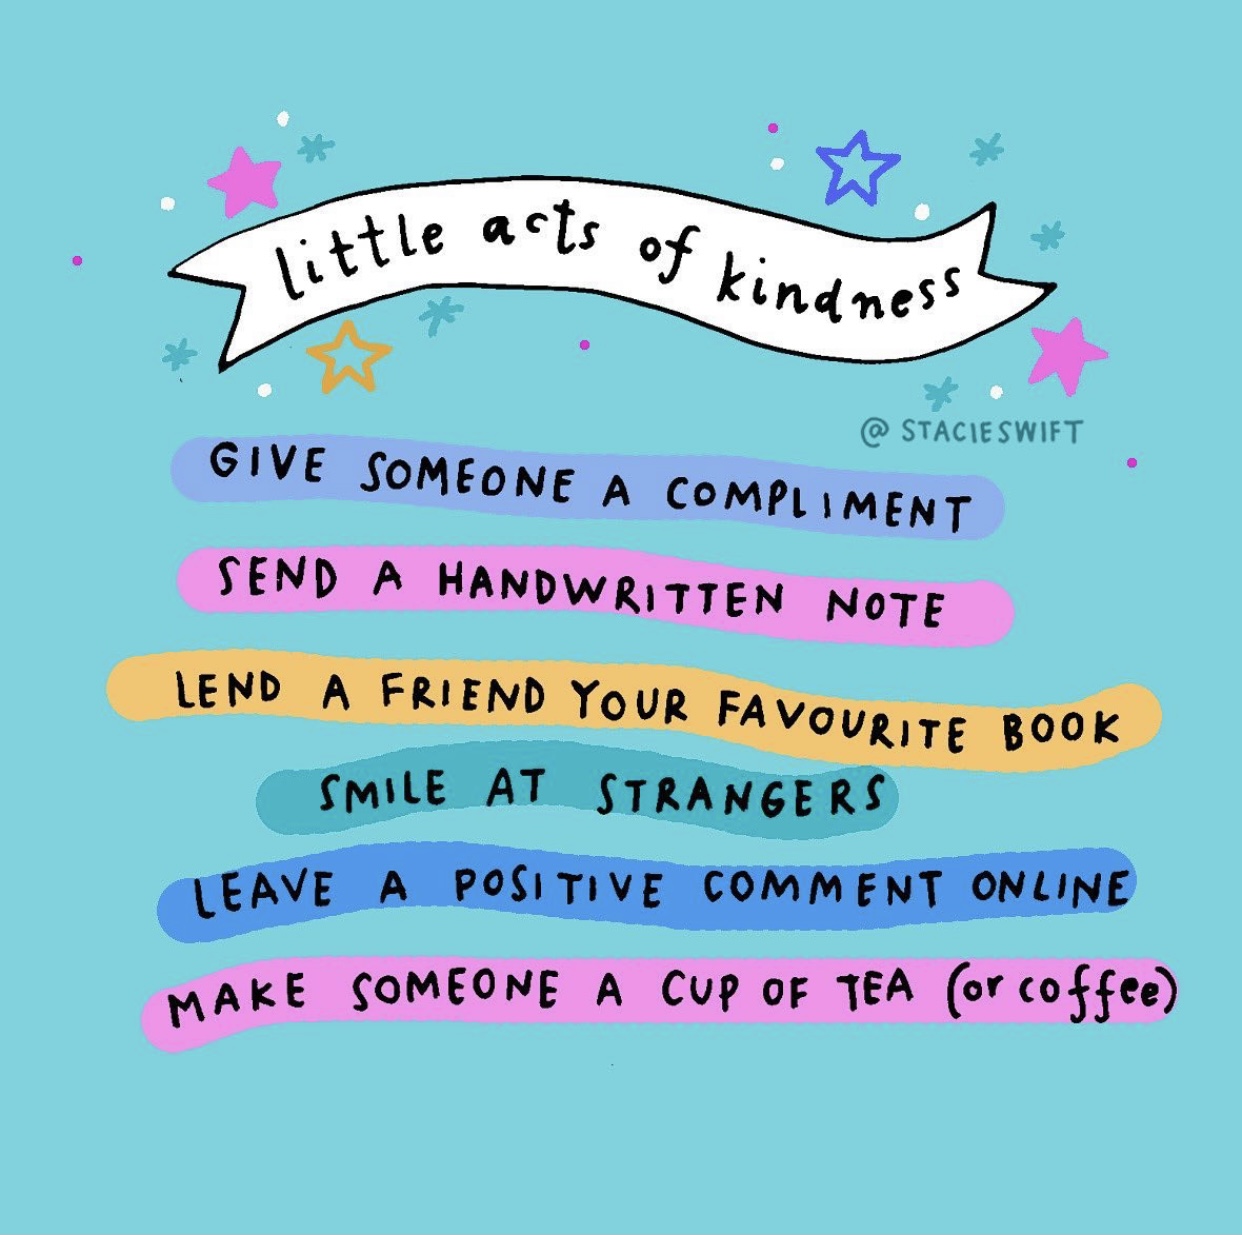 little acts of kindness
@STACIESWIFT
GIVE SOMEONE A COMPLIMENT
SEND A HANDWRITTEN NOTE
LEND A FRIEND YOUR FAVOURITE BOOK
SMILE AT STRANGERS
LEAVE A POSITIVE COMMENT ONLINE
MAKE SOMEONE A CUP OF TEA (or coffee)